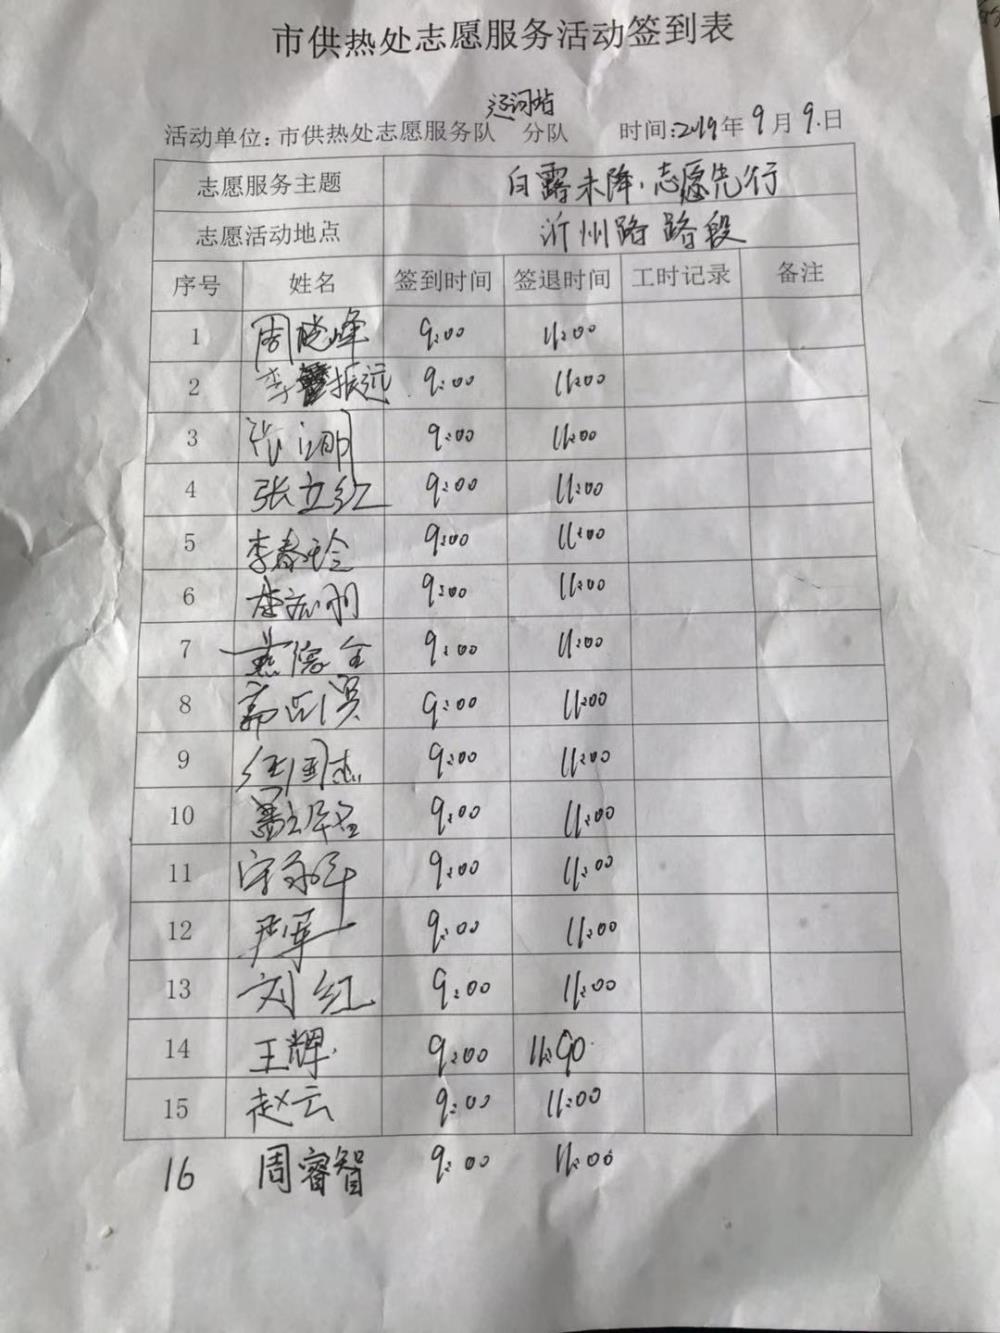 市供热处志愿服务活动签到表
运河站
活动单位:市供热处志愿服务队 分队 时间:2019年9月9.日
志愿服务主题 白露未降,志愿先行
志愿活动地点 沂州路路段
序号 姓名 签到时间 签退时间 工时记录 备注
1 周晓峰 9:00 11:00
2 李振远 9:00 11:00
3 张 9:00 11:00
4 张立红 9:00 11:00
5 李春玲 9:00 11:00
6 9:00 11:00
7 燕 全 9:00 11:00
8 9:00 11:00
9 国志 9:00 11:00
10 9:00 11:00
11 宋永华 9:00 11:00
12 军 9:00 11:00
13 刘红 9:00 11:00
14 王辉 9:00 11:00
15 赵云 9:00 11:00
16 周睿智 9:00 11:00